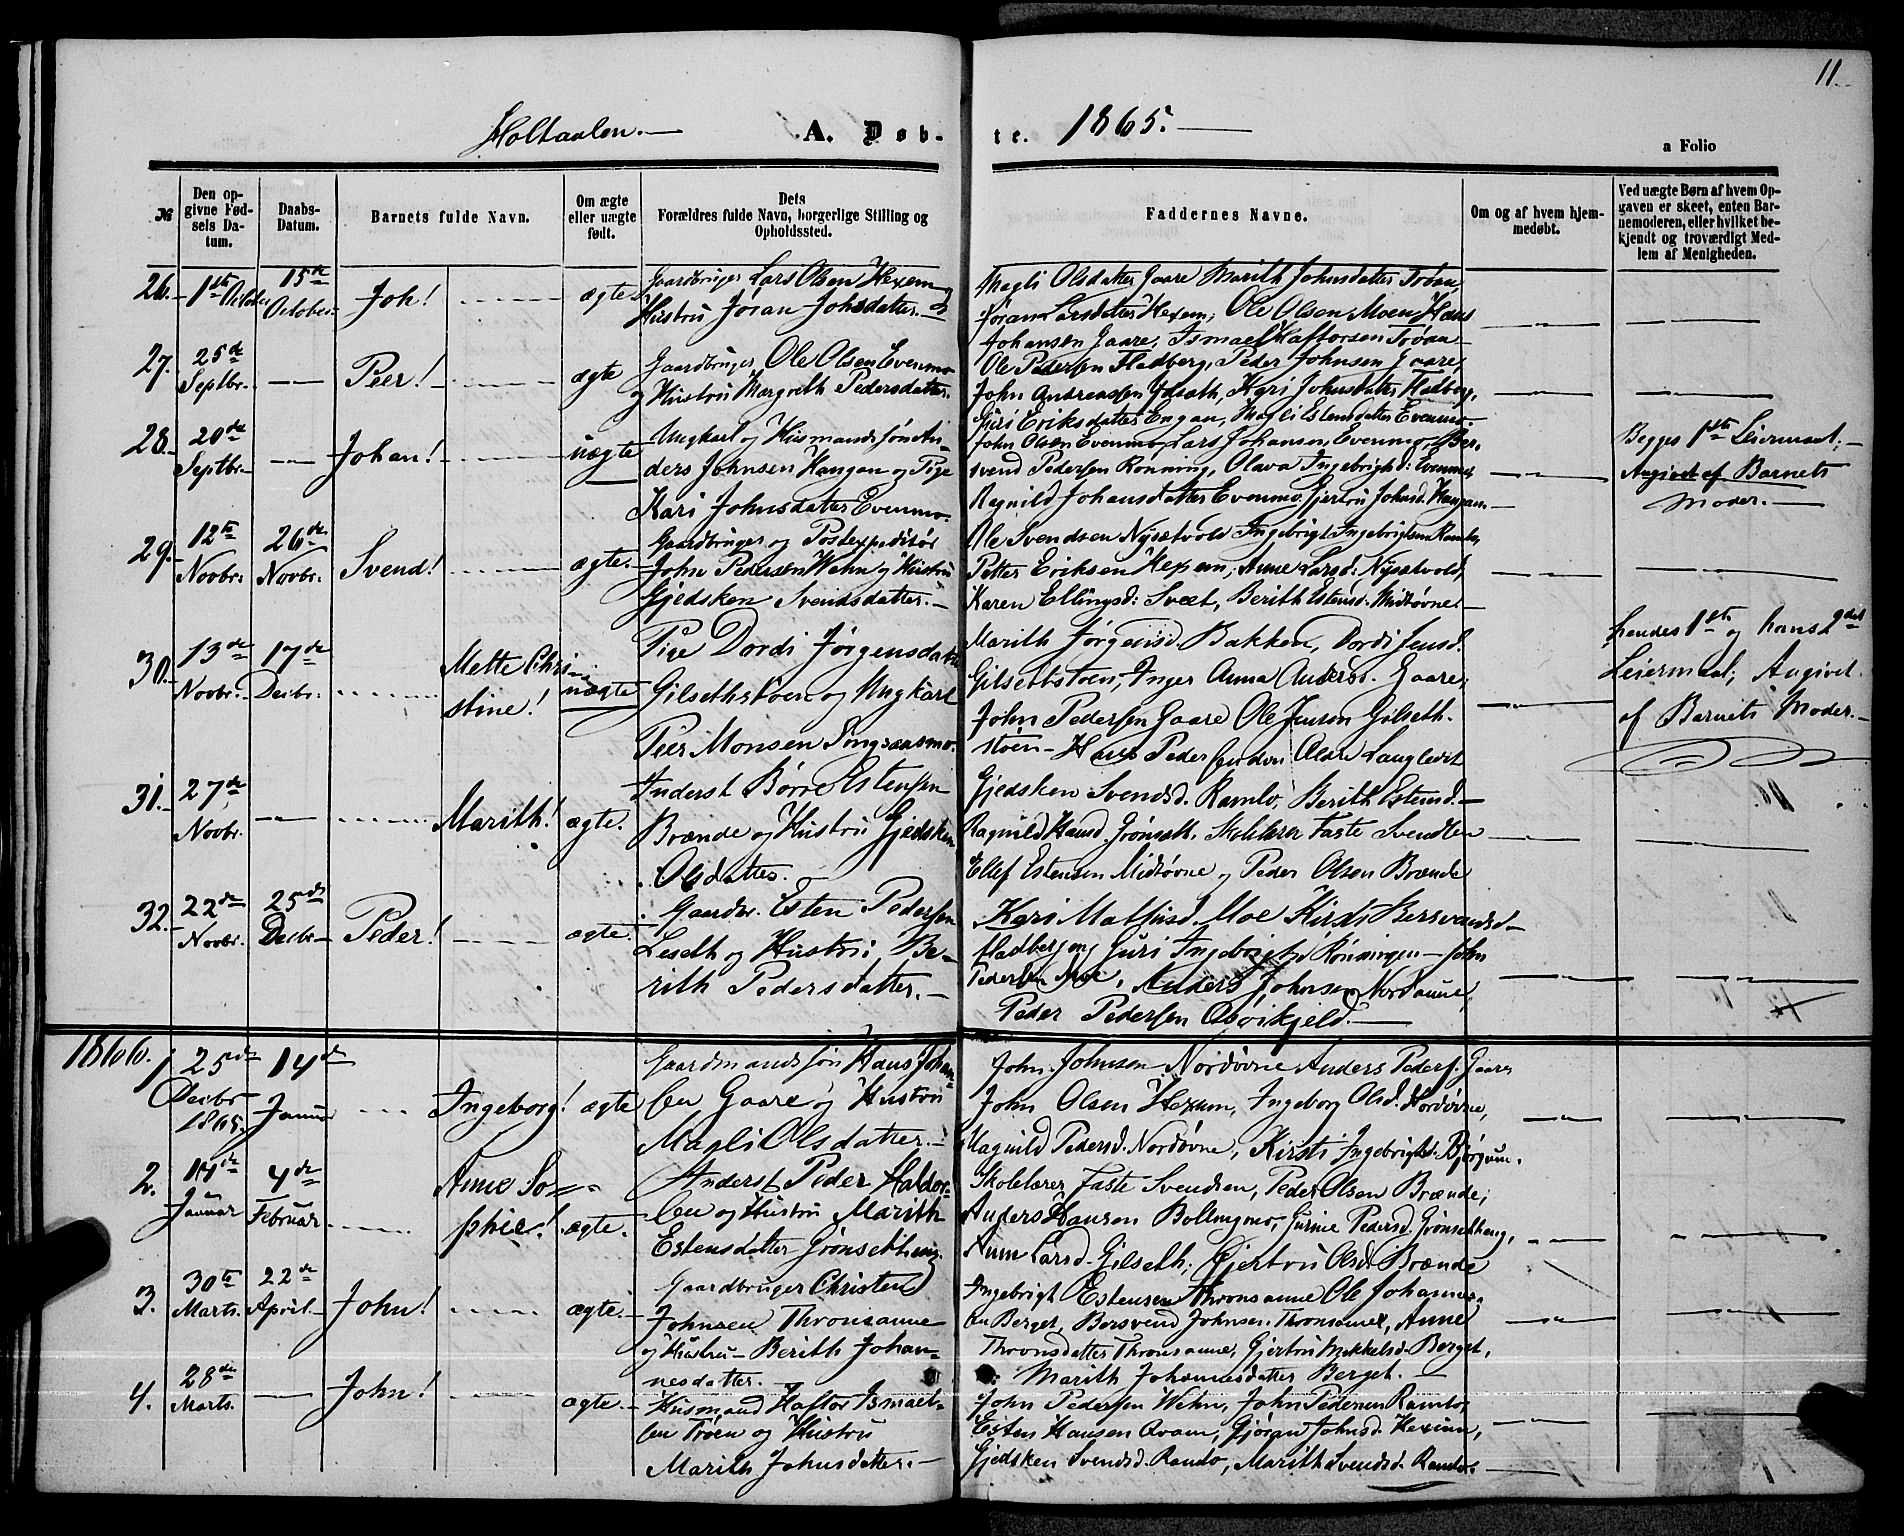 11.
Holtaalen.
A. Døb-
te.
1865.
a Folio
№
Den op-
givne Fød-
sels Da-
tum.
Daabs-
Datum.
Barnets fulde Navn.
Om ægte
eller uægte
født.
Dets
Forældres fulde Navn, borgerlige Stilling og
Opholdssted.
Faddernes Navne.
Om og af hvem hjem-
medøbt.
Ved uægte Børn af hvem Op-
gaven er skeet, enten Bar-
nemoderen, eller hvilket be-
kjendt og troværdigt Med-
lem af Menigheden.
26.
1ste October
15de
October
Joh!
ægte
Gaardbruger Lars Olsen Hexem og
Hustru Jøran Johsdatter.
Magli Olsdatter Gaare Marith Johnsdatter Trøen,
Jøran Larsdatter Hexem, Ole Olsen Moen Hans
Johansen Gaare, Ismael Haftorsen Trøen
27.
25de
Septbr.
Peer!
ægte
Gaardbruger Ole Olsen Evenmo
og Hustru Margreth Pedersdatter.
Ole Pedersen Fladberg, Peder Johnsen Gaare,
John Andreassen, Kari Johnsdatter Fladberg,
Guri Eriksdatter Engan, Magli Estensdatter Evenmo.
28.
20de
Septbr.
Johan!
uægte
Ungkarl og Husmandssøn An-
ders Johnsen Haugan og Pige
Kari Johnsdatter Evenmo.
John Olsen Evenmo, Lars Johansen Evenmo, Ber-
svend Pedersen Rønning, Olava Ingebrigtsd: Evenmo,
Ragnild Johansdatter Evenmo, Gjertru Johnsd. Haugan
Begges 1ste Leiermaal,
Angivet af Barnets
Moder.
29.
12te
Novbr.
26de
Novbr.
Svend!
ægte.
Gaardbruger og Postexpeditør
John Pedersen Wehn og Hustru
Gjedsken Svendsdatter.
Ole Svendsen Nysætvold Ingebrigt Ingebrigtsen Ramlo,
Petter Eriksen Hexem, Anne Larsd: Nysætvold,
Karen Ellingsd: Svæt, Berith Estensd. Midtøvne.
30.
13de
Novbr.
17de
Decbr.
Mette Chri-
stine!
uægte
Pige Dordi Jørgensdatter
Gilsethstøen og Ungkarl
Peer Monsen Singsaasmo.
Marith Jørgensd. Bakken, Dordi Jensd.
Gilsethstøen, Inger Anna Andersd. Gaare,
John Pedersen Gaare Ole Jensen Gilseth-
støen
hendes 1ste og hans 2det
Leiermaal, Angivet
af Barnets Moder.
31.
27de
Novbr.
Marith!
ægte.
Inderst Børre Estensen
Brænde og Hustru Gjedsken
Olsdatter.
Gjedsken Svendsd. Ramlo, Berith Estensd.
Ragnild Hansd. Grønseth, Skolelærer Faste Svendsen
Ellef Estensen Midtøvne og Peder Olsen Brænde
32.
22de
Novbr.
25de
Decbr.
Peder!
ægte.
Gaardbr. Esten Pedersen
Leseth og Hustru Be-
rith Pedersdatter.
Kari Mathisd. Moe Kirsti Bersvendsd
Fladberg og Guri Ingebrigtsd. Rønningen John
Pedersen Moe, Anders Johnsen Nordaune,
Peder Pedersen Qvikjeld.
1866.
1
25de
Decbr
1865.
14de
Januar
Ingeborg!
ægte
Gaardmandssøn Hans Johan-
sen Gaare og Hustru
Magli Olsdatter.
John Johnsen Nordøvne Anders Peders. Gaare
John Olsen Hexem, Ingeborg Olsd. Nordøvne,
Ragnild Pedersd. Nordøvne, Kirsti Ingebrigtsd. Bjørgum.
2.
14de
Januar
4de
Februar
Anne So-
phie!
ægte.
Inderst Peder Haldor-
sen og Hustru Marith
Estensdatter Grønsetheng.
Skolelærer Faste Svendsen, Peder Olsen Brænde,
Anders Hansen Bollingmo, Gurine Pedersd. Grønsetheng,
Anne Larsd. Gilseth, Gjertru Olsd. Brænde
3.
30te
Marts.
22de
April.
John!
ægte.
Gaardbruger Christen
Johnsen Thronsaune
og Hustru Berith Johan-
nesdatter.
Ingebrigt Estensen Thronsaune Ole Johannes-
sen Berget, Bersvend Johnsen Thronsaune, Anne
Thronsdatter Thronsaune, Gjertru Mikkelsd. Berget,
Marith Johannesdatter Berget.
4.
28de
Marts.
John!
ægte.
Husmand Haftor Ismael-
sen Trøen og Hustru
Marith Johnsdatter.
John Pedersen Wehn, John Pedersen Ramlo,
Esten Hansen Qvam, Gjøran Johnsd. Hexem,
Gjedsken Svendsd. Ramlo, Marith Svendsd. Ramlo.